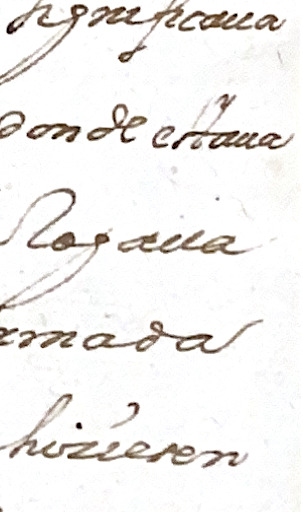 significaua
donde estaua
Rogaua
rmada
hiziesen